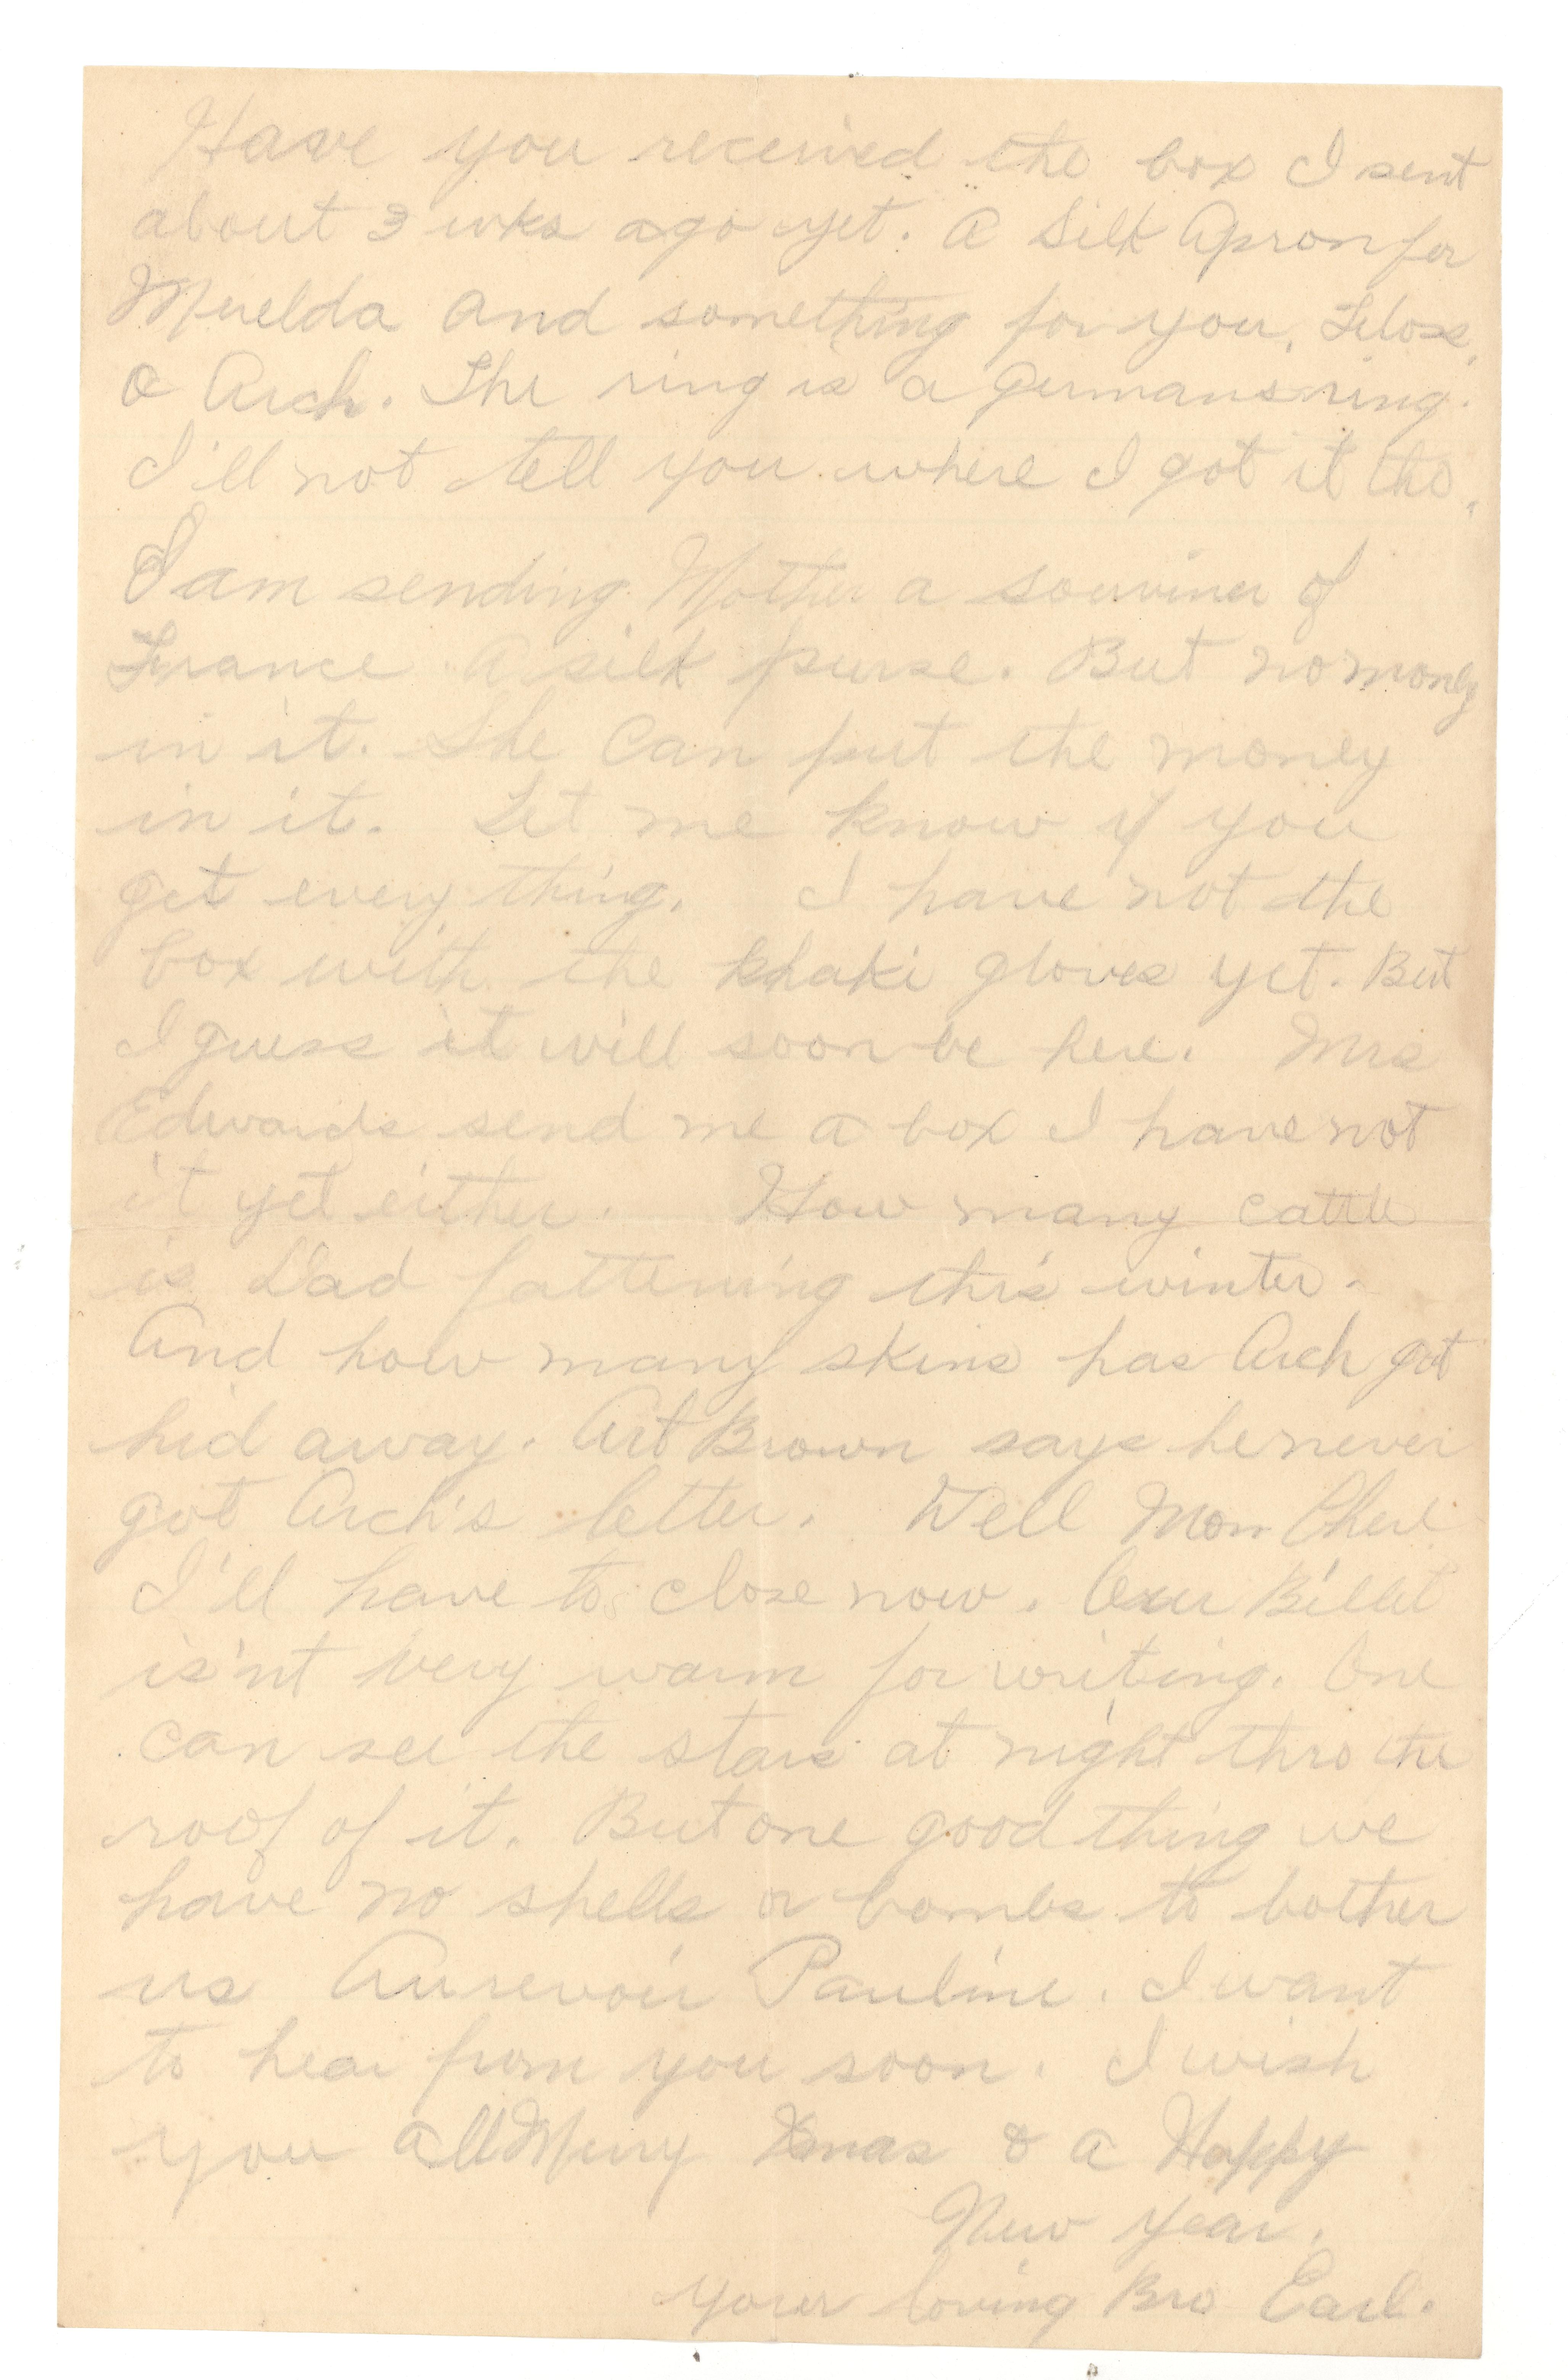 Have you received the box I sent
about 3 wks ago yet. A Silk Apron for
Merelda and something for you,
& Arch. The ring is a germans ring.
I'll not tell you where I got it tho.
I am sending Mother a souviner of
France. A silk purse. But no money
in it. She Can put the money
in it. Let me know if you
get every thing. I have not the
box with the khaki gloves yet. But
I guess it will soon be here. Mrs
Edwards send me a box I have not
it yet either. How many cattle
is Dad fattening this winter.
And how many skins has Arch got
hid away. Art Brown says he never
got Arch's letter. Well Mon Cheri
I'll have to close now. Our Billet
is'nt very warm for writing. One
can see the stars at night thro the
roof of it. But one good thing we
have no shells or bombs to bother
us Aurevoir Pauline. I want
to hear from you soon. I wish
you all Merry Xmas & a Happy
New Year.
Your loving Bro Earl.